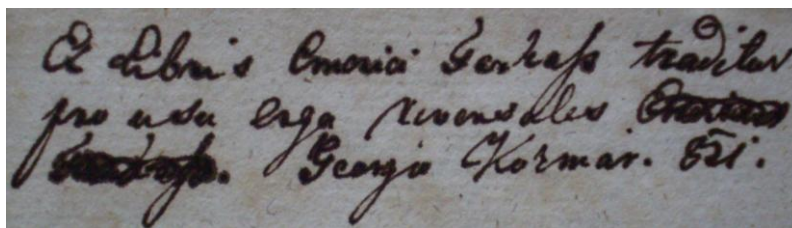 Ex Libris Emerici Farkass traditur
pro usu erga reversales
Georgio Kozmár. 821.